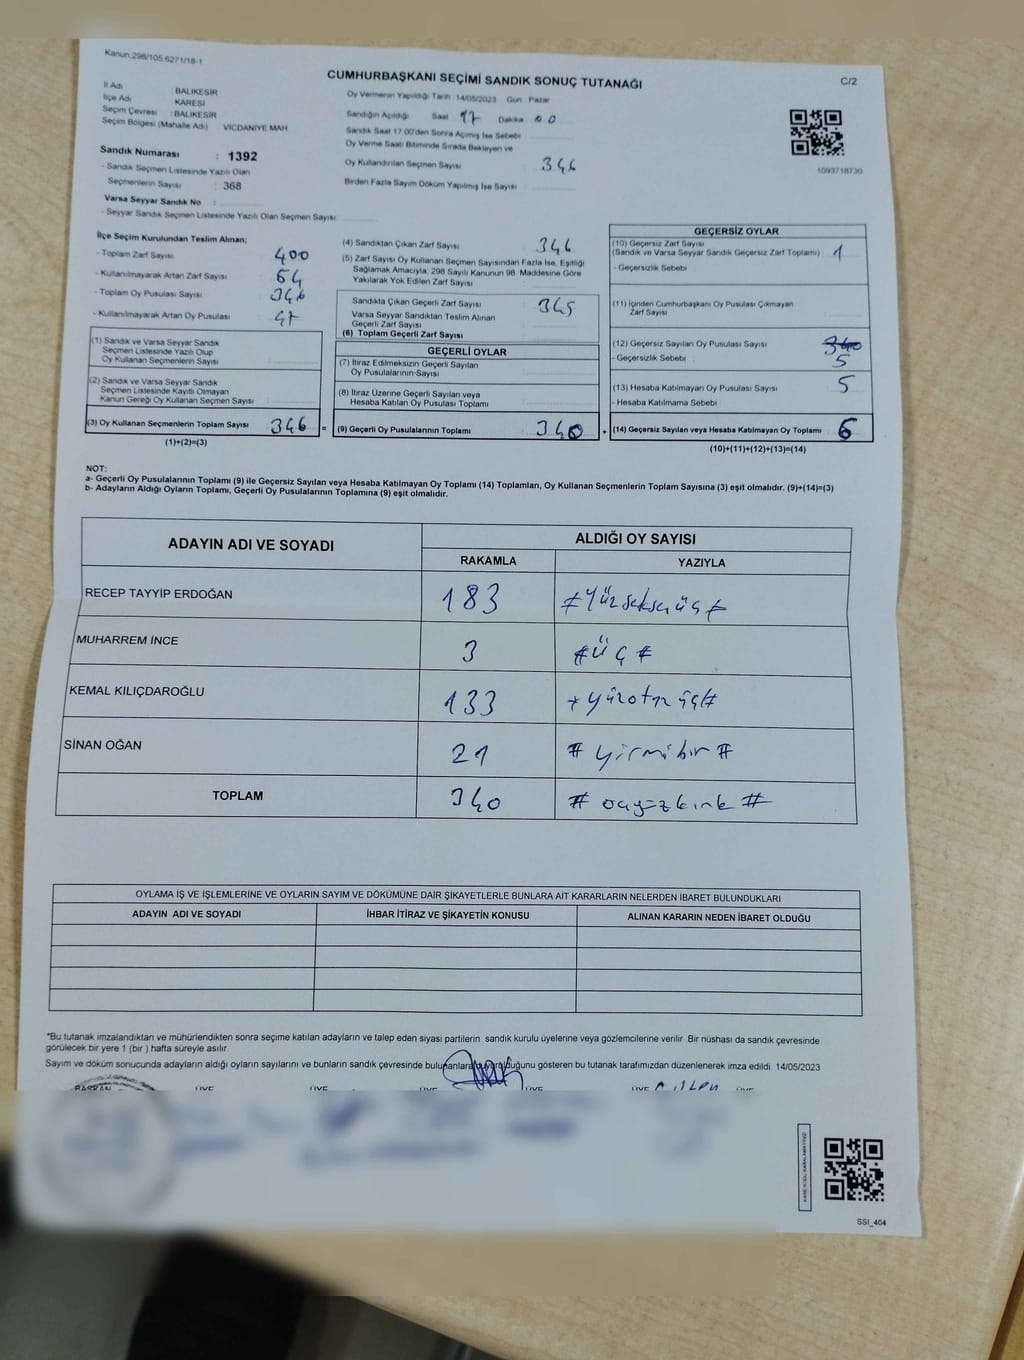 Kanun:298/105,6271/18-1
CUMHURBAŞKANI SEÇİMİ SANDIK SONUÇ TUTANAĞI
C/2
İl Adı : BALIKESİR
İlçe Adı : KARESİ
Seçim Çevresi : BALIKESİR
Seçim Bölgesi (Mahalle Adı) VİCDANİYE MAH
Sandık Numarası : 1392
- Sandık Seçmen Listesinde Yazılı Olan
Seçmenlerin Sayısı : 368
Varsa Seyyar Sandık No :
- Seyyar Sandık Seçmen Listesinde Yazılı Olan Seçmen Sayısı:
Oy Vermenin Yapıldığı Tarih: 14/05/2023 Gün: Pazar
Sandığın Açıldığı Saat 17 Dakika 00
Sandık Saat 17:00'den Sonra Açılmış İse Sebebi
Oy Verme Saati Bitiminde Sırada Bekleyen ve
Oy Kullandırılan Seçmen Sayısı 346
Birden Fazla Sayım Döküm Yapılmış İse Sayısı
1093718730
İlçe Seçim Kurulundan Teslim Alınan;
- Toplam Zarf Sayısı 400
- Kullanılmayarak Artan Zarf Sayısı 54
- Toplam Oy Pusulası Sayısı
- Kullanılmayarak Artan Oy Pusulası 47
(1) Sandık ve Varsa Seyyar Sandık
Seçmen Listesinde Yazılı Olup
Oy Kullanan Seçmenlerin Sayısı
(2) Sandık ve Varsa Seyyar Sandık
Seçmen Listesinde Kayıtlı Olmayan
Kanun Gereği Oy Kullanan Seçmen Sayısı
(3) Oy Kullanan Seçmenlerin Toplam Sayısı : 346 =
(1)+(2)=(3)
(4) Sandıktan Çıkan Zarf Sayısı 346
(5) Zarf Sayısı Oy Kullanan Seçmen Sayısından Fazla İse, Eşitliği
Sağlamak Amacıyla; 298 Sayılı Kanunun 98. Maddesine Göre
Yakılarak Yok Edilen Zarf Sayısı
Sandıkta Çıkan Geçerli Zarf Sayısı 345
Varsa Seyyar Sandıktan Teslim Alınan
Geçerli Zarf Sayısı
(6) Toplam Geçerli Zarf Sayısı
GEÇERLİ OYLAR
(7) İtiraz Edilmeksizin Geçerli Sayılan
Oy Pusulalarının Sayısı
(8) İtiraz Üzerine Geçerli Sayılan veya
Hesaba Katılan Oy Pusulası Toplamı
(9) Geçerli Oy Pusulalarının Toplamı : 340 +
GEÇERSİZ OYLAR
(10) Geçersiz Zarf Sayısı
(Sandık ve Varsa Seyyar Sandık Geçersiz Zarf Toplamı) 1
- Geçersizlik Sebebi
(11) İçinden Cumhurbaşkanı Oy Pusulası Çıkmayan
Zarf Sayısı
(12) Geçersiz Sayılan Oy Pusulası Sayısı 340
- Geçersizlik Sebebi 5
(13) Hesaba Katılmayan Oy Pusulası Sayısı 5
- Hesaba Katılmama Sebebi
(14) Geçersiz Sayılan veya Hesaba Katılmayan Oy Toplamı 6
(10)+(11)+(12)+(13)=(14)
NOT:
a- Geçerli Oy Pusulalarının Toplamı (9) ile Geçersiz Sayılan veya Hesaba Katılmayan Oy Toplamı (14) Toplamları, Oy Kullanan Seçmenlerin Toplam Sayısına (3) eşit olmalıdır. (9)+(14)=(3)
b- Adayların Aldığı Oyların Toplamı, Geçerli Oy Pusulalarının Toplamına (9) eşit olmalıdır.
ADAYIN ADI VE SOYADI
ALDIĞI OY SAYISI
RAKAMLA YAZIYLA
RECEP TAYYİP ERDOĞAN 183 #Yüzseksenüç#
MUHARREM İNCE 3 #üç#
KEMAL KILIÇDAROĞLU 133 #yüzotuzüç#
SİNAN OĞAN 21 #yirmibir#
TOPLAM 340 #üçyüzkırk#
OYLAMA İŞ VE İŞLEMLERİNE VE OYLARIN SAYIM VE DÖKÜMÜNE DAİR ŞİKAYETLERLE BUNLARA AİT KARARLARIN NELERDEN İBARET BULUNDUKLARI
ADAYIN ADI VE SOYADI İHBAR İTİRAZ VE ŞİKAYETİN KONUSU ALINAN KARARIN NEDEN İBARET OLDUĞU
*Bu tutanak imzalandıktan ve mühürlendikten sonra seçime katılan adayların ve talep eden siyasi partilerin sandık kurulu üyelerine veya gözlemcilerine verilir. Bir nüshası da sandık çevresinde
görülecek bir yere 1 (bir) hafta süreyle asılır.
Sayım ve döküm sonucunda adayların aldığı oyların sayılarını ve bunların sandık çevresinde bulunanlara duyurulduğunu gösteren bu tutanak tarafımızdan düzenlenerek imza edildi. 14/05/2023
BAŞKAN ÜYE ÜYE ÜYE ÜYE ÜYE ÜYE
KARE KODU KARALAMAYINIZ!
SSİ_404